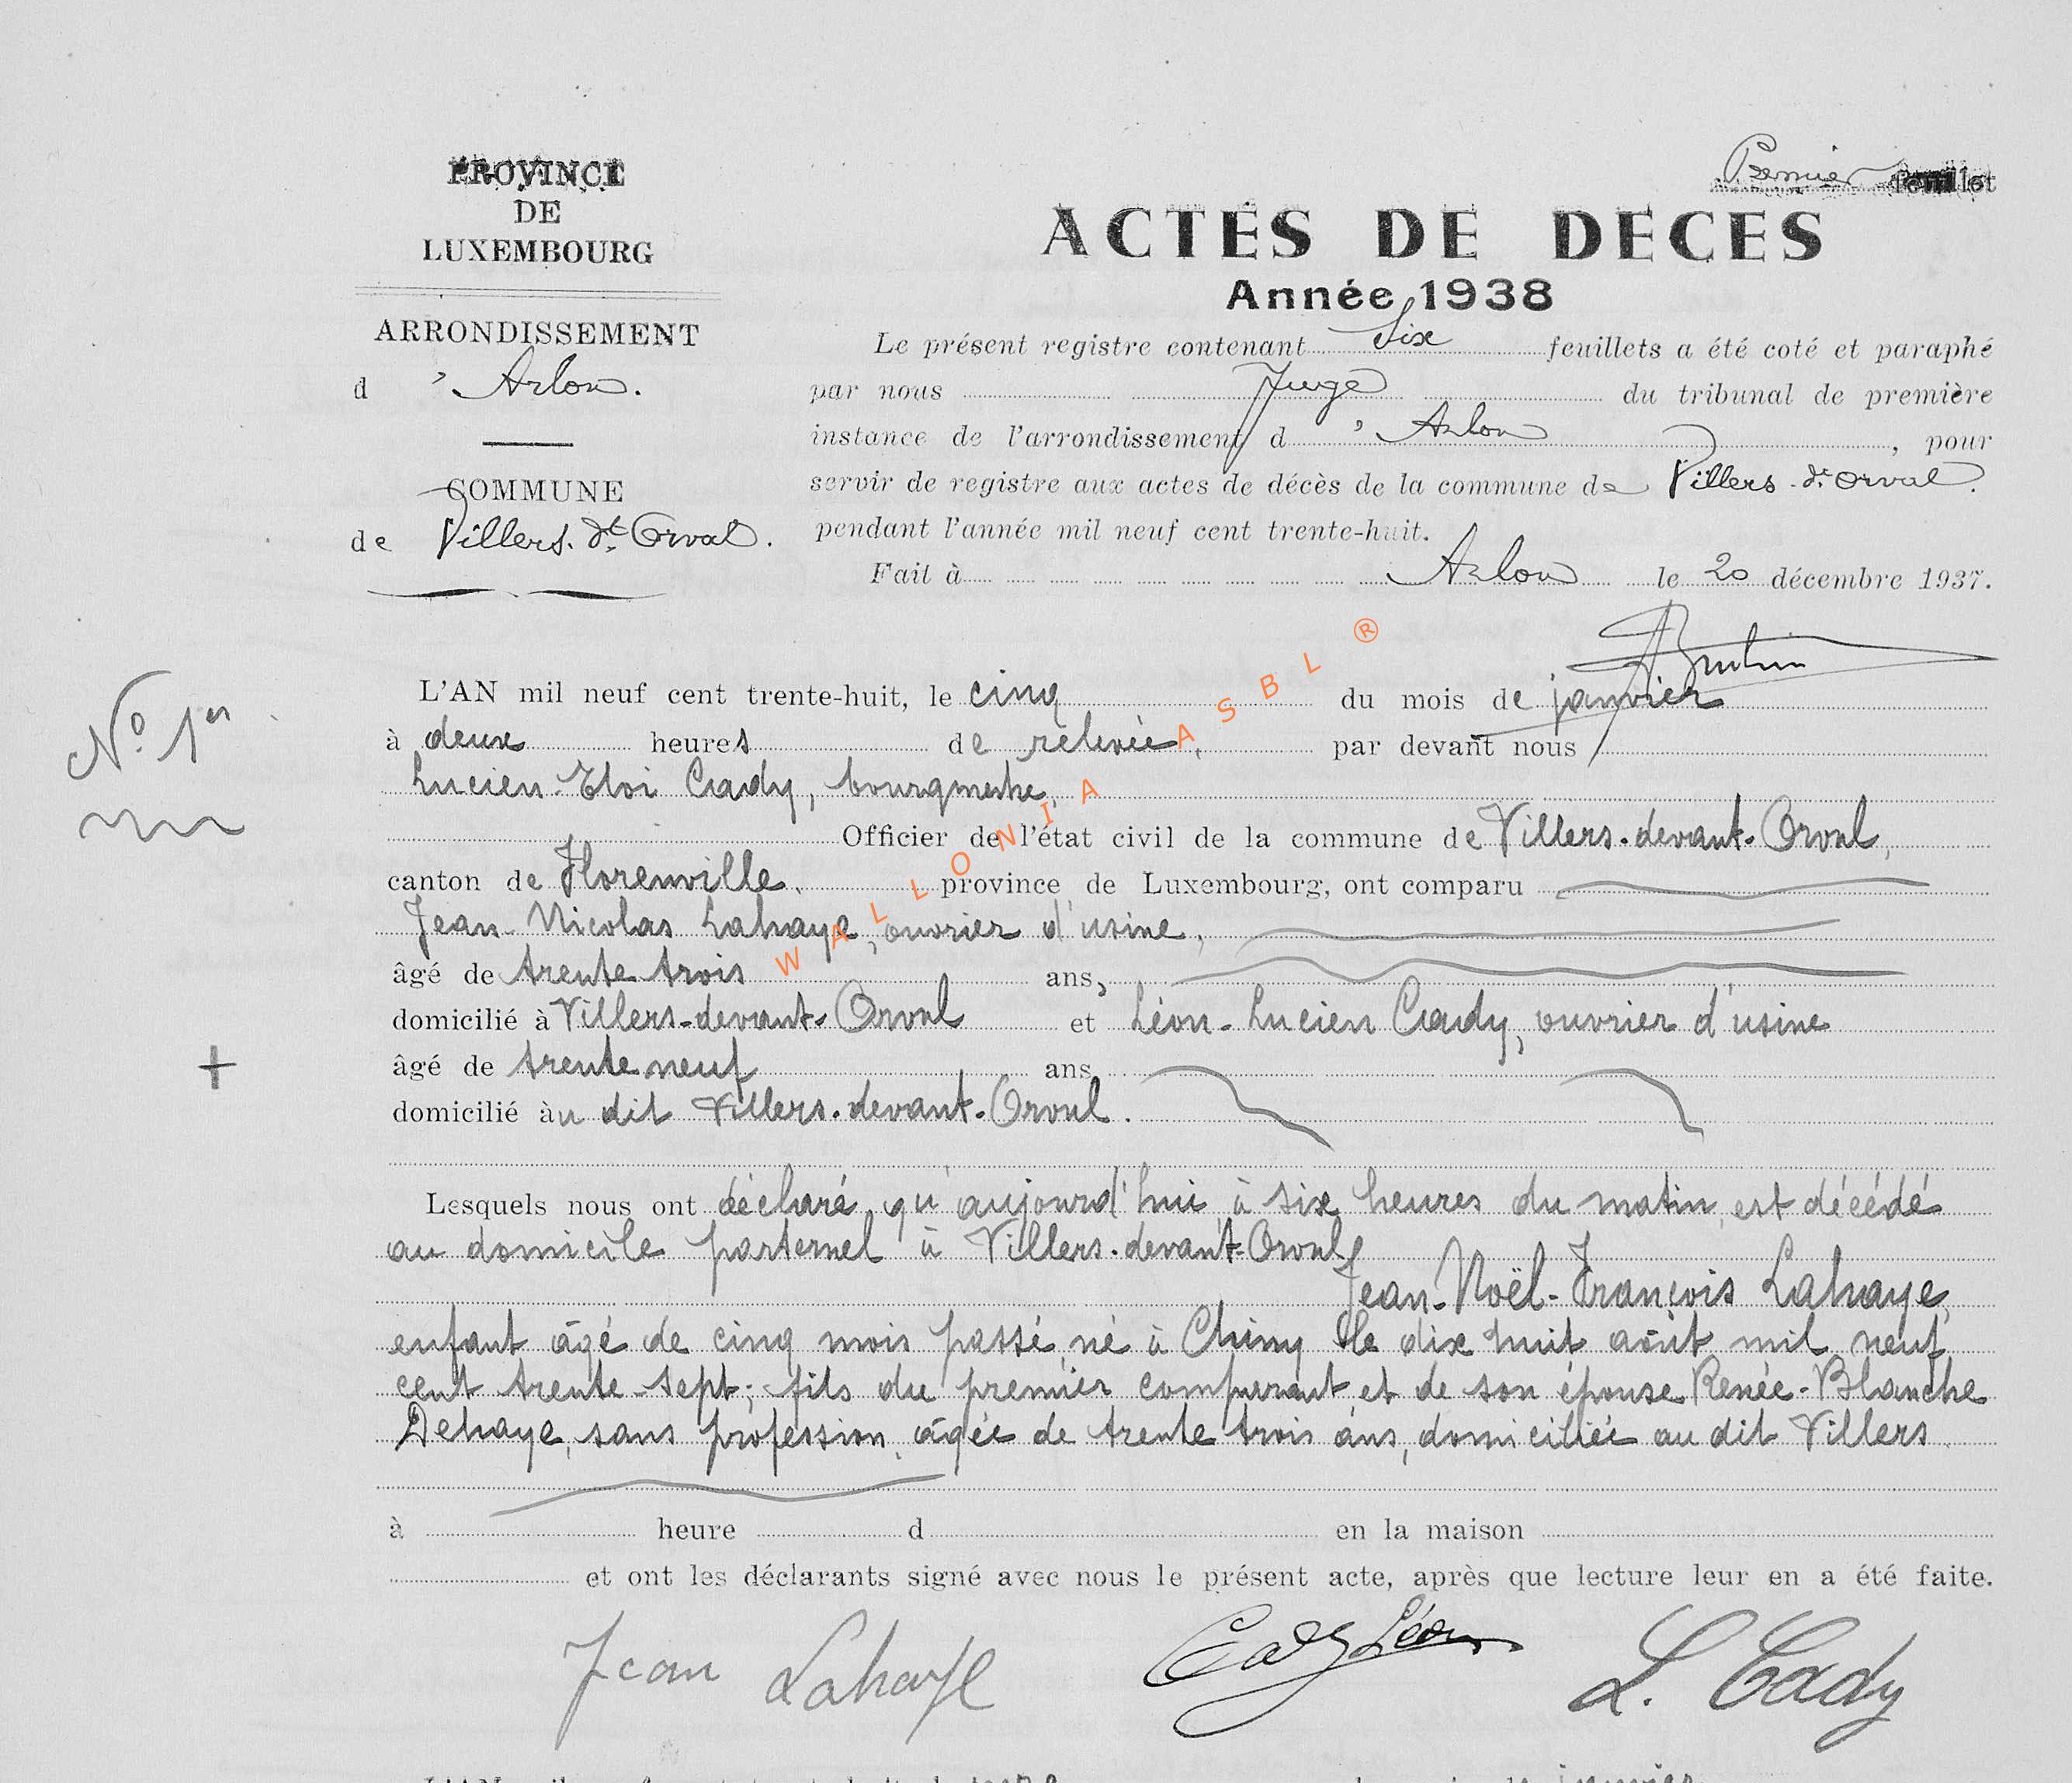 PROVINCE
DE
LUXEMBOURG
ARRONDISSEMENT
d'Arlon.
COMMUNE
de Villers. dt Orval.
Premier feuillet
ACTES DE DECES
Année 1938
Le présent registre contenant Six feuillets a été coté et paraphé
par nous Juge du tribunal de première
instance de l'arrondissement d'Arlon, pour
servir de registre aux actes de décès de la commune de Villers-dt Orval.
pendant l'année mil neuf cent trente-huit.
Fait à Arlon le 20 décembre 1937.
No 1er
L'AN mil neuf cent trente-huit, le cinq du mois de janvier
à deux heures de relevée, par devant nous
Lucien Eloi Cady, bourgmestre,
Officier de l'état civil de la commune de Villers-devant-Orval,
canton de Florenville, province de Luxembourg, ont comparu
Jean-Nicolas Lahaye, ouvrier d'usine,
âgé de trente trois ans,
domicilié à Villers-devant-Orval et Léon-Lucien Cady, ouvrier d'usine
âgé de trente neuf ans
domicilié àu dit Villers-devant-Orval.
Lesquels nous ont déclaré qu'aujourd'hui à six heures du matin, est décédé
au domicile parternel à Villers-devant-Orval
Jean-Noël-François Lahaye,
enfant âgé de cinq mois passé, né à Chiny le dix huit août mil neuf
cent trente-sept; fils du premier comparant et de son épouse Renée-Blanche
Dehaye, sans profession, âgée de trente trois ans, domiciliée au dit Villers
à heure d en la maison
et ont les déclarants signé avec nous le présent acte, après que lecture leur en a été faite.
Jean Lahaye Cady Léon L. Cady
WALLONIA ASBL ®